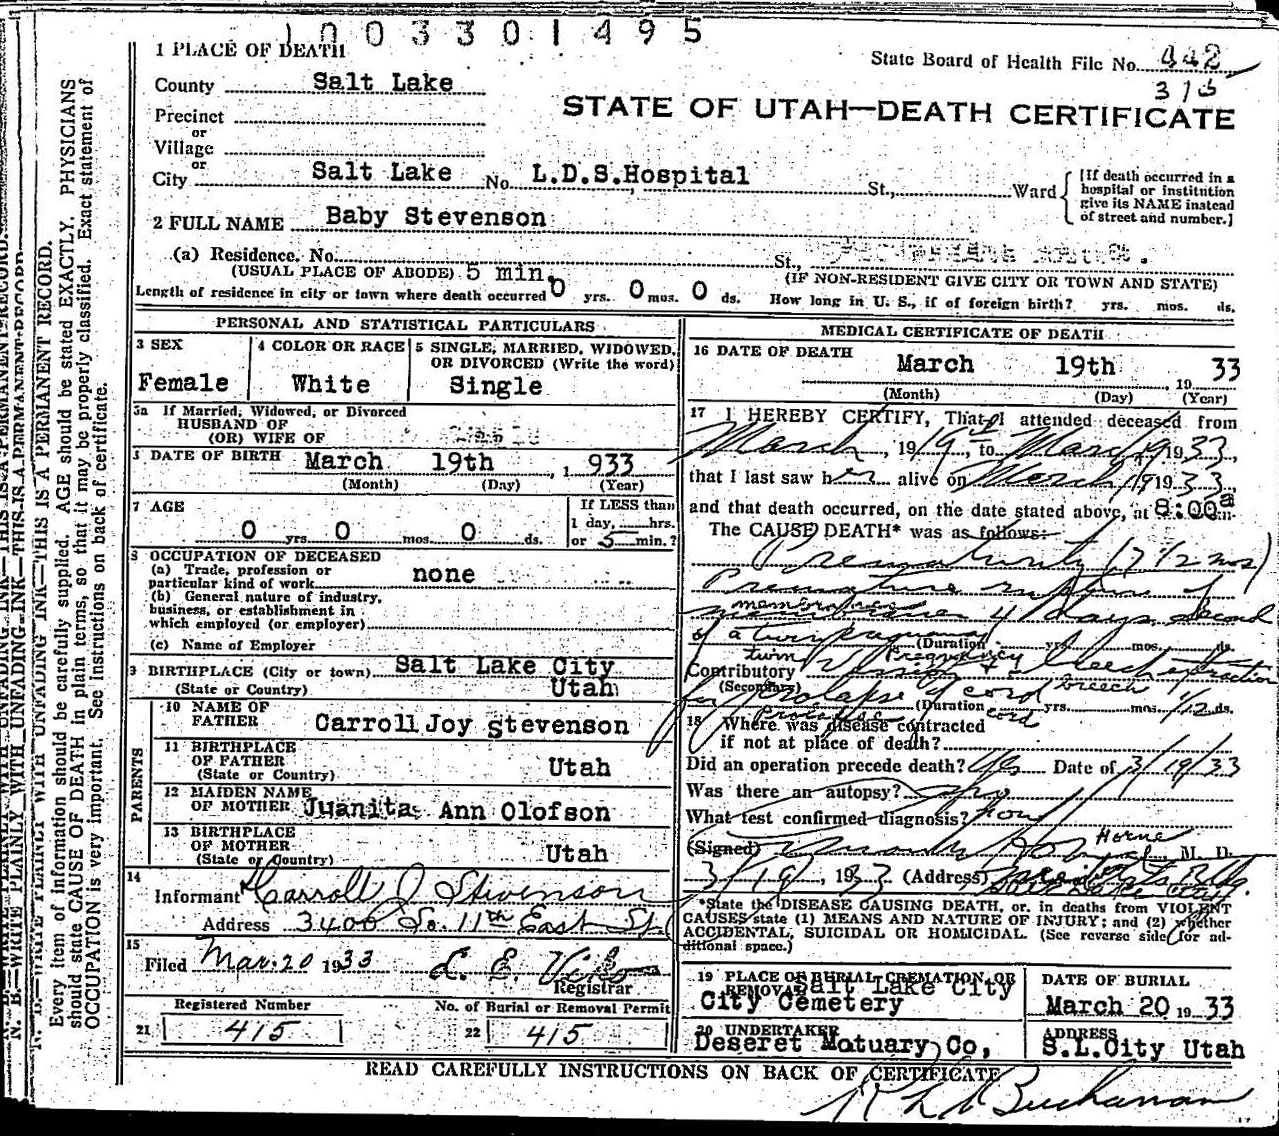 1003301495
1 PLACE OF DEATH
State Board of Health File No. 442
County Salt Lake
STATE OF UTAH—DEATH CERTIFICATE
Precinct
or
Village
or
City Salt Lake No. L.D.S.Hospital St., Ward
[If death occurred in a
hospital or institution
give its NAME instead
of street and number.]
2 FULL NAME Baby Stevenson
(a) Residence. No. St.,
(USUAL PLACE OF ABODE) 5 min. (IF NON-RESIDENT GIVE CITY OR TOWN AND STATE)
Length of residence in city or town where death occurred 0 yrs. 0 mos. 0 ds. How long in U. S., if of foreign birth? yrs. mos. ds.
PERSONAL AND STATISTICAL PARTICULARS
3 SEX
Female
4 COLOR OR RACE
White
5 SINGLE, MARRIED, WIDOWED,
OR DIVORCED (Write the word)
Single
5a If Married, Widowed, or Divorced
HUSBAND OF
(OR) WIFE OF
DATE OF BIRTH March 19th , 1 933
(Month) (Day) (Year)
7 AGE
0 yrs 0 mos. 0 ds.
If LESS than
1 day, hrs.
or 5 min.?
8 OCCUPATION OF DECEASED
(a) Trade, profession or
particular kind of work none
(b) General nature of industry,
business, or establishment in
which employed (or employer)
(c) Name of Employer
9 BIRTHPLACE (City or town) Salt Lake City
(State or Country) Utah
PARENTS
10 NAME OF
FATHER Carroll Joy Stevenson
11 BIRTHPLACE
OF FATHER
(State or Country) Utah
12 MAIDEN NAME
OF MOTHER Juanita Ann Olofson
13 BIRTHPLACE
OF MOTHER
(State or Country) Utah
14
Informant Carroll J Stevenson
Address 3400 So. 11th East St
15
Filed Mar. 20 1933
Registrar
Registered Number
21 415
No. of Burial or Removal Permit
22 415
MEDICAL CERTIFICATE OF DEATH
16 DATE OF DEATH
March 19th , 19 33
(Month) (Day) (Year)
17 I HEREBY CERTIFY, That I attended deceased from
March , 19 19 to March 19 1933,
that I last saw her alive on March 19 1933,
and that death occurred, on the date stated above, at 8:00a m.
The CAUSE DEATH* was as follows:
Prematurity (7 1/2 mos)
Premature rupture of
membranes
membranes 4 days second
of a twin pregnancy (Duration yrs. mos. ds.
twin Pregnancy
Contributory Version & breech extraction
(Secondary)
for prolapse of cord breech
(Duration yrs. mos. 1/12 ds.
prolapse cord
18 Where was disease contracted
if not at place of death?
Did an operation precede death? Yes Date of 3/19/33
Was there an autopsy?
What test confirmed diagnosis?
Horne
(Signed) M. D.
3/19, 1933 (Address)
*State the DISEASE CAUSING DEATH, or, in deaths from VIOLENT
CAUSES state (1) MEANS AND NATURE OF INJURY; and (2) whether
ACCIDENTAL, SUICIDAL OR HOMICIDAL. (See reverse side for ad-
ditional space.)
19 PLACE OF BURIAL, CREMATION, OR
REMOVAL Salt Lake City
City Cemetery
DATE OF BURIAL
March 20 19 33
20 UNDERTAKER
Deseret Motuary Co,
ADDRESS
S.L.City Utah
READ CAREFULLY INSTRUCTIONS ON BACK OF CERTIFICATE
Buchanan
N. B.—WRITE PLAINLY WITH UNFADING INK—THIS IS A PERMANENT RECORD.
Every item of information should be carefully supplied. AGE should be stated EXACTLY. PHYSICIANS
should state CAUSE OF DEATH in plain terms, so that it may be properly classified. Exact statement of
OCCUPATION is very important. See instructions on back of certificate.